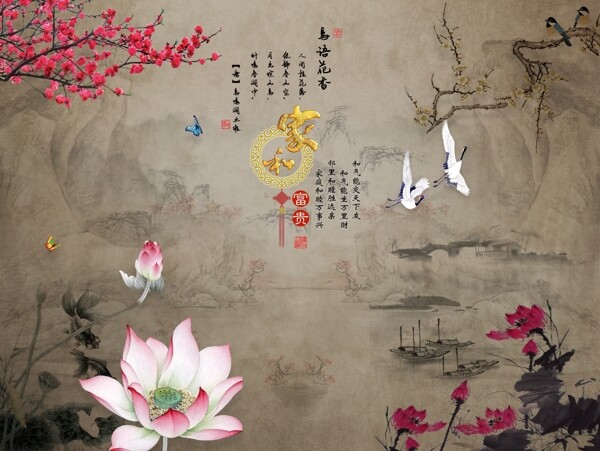 鸟语花香
人闲桂花落，
夜静春山空。
月出惊山鸟，
时鸣春涧中。
【唐】鸟鸣涧王维
家和
富贵
和气能交天下友
和气能生万里財
邻里和睦胜远亲
家庭和睦万事兴